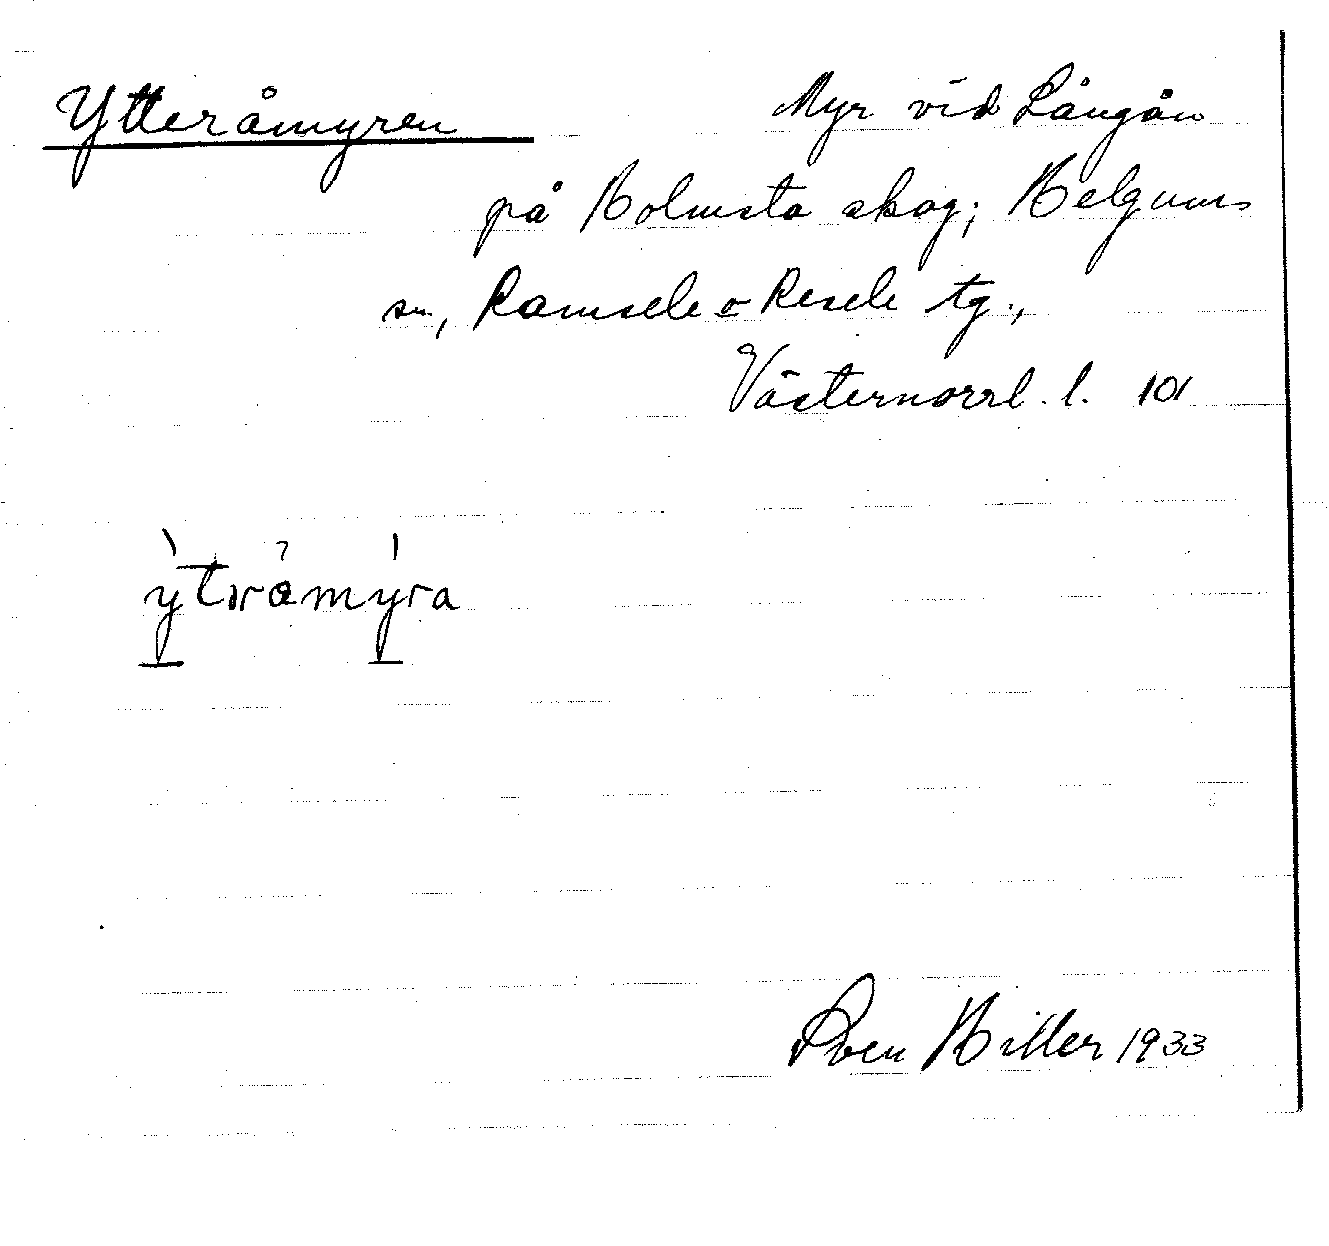 Ytteråmyren
Myr vid Långån
på Holmsta skog; Helgums
sn, Ramsele o Resele tg.,
Västernorrl. l. 101
ytıråmyra
Sven Hiller 1933